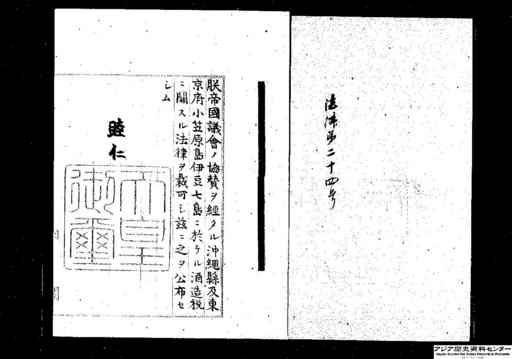 法律第二十四号
朕帝國議會ノ協賛ヲ經タル沖縄縣及東
京府小笠原島伊豆七島ニ於ケル酒造税
ニ關スル法律ヲ裁可シ茲ニ之ヲ公布セ
シム
睦仁
天皇
御璽
アジア歴史資料センター
Japan Center for Asian Historical Records